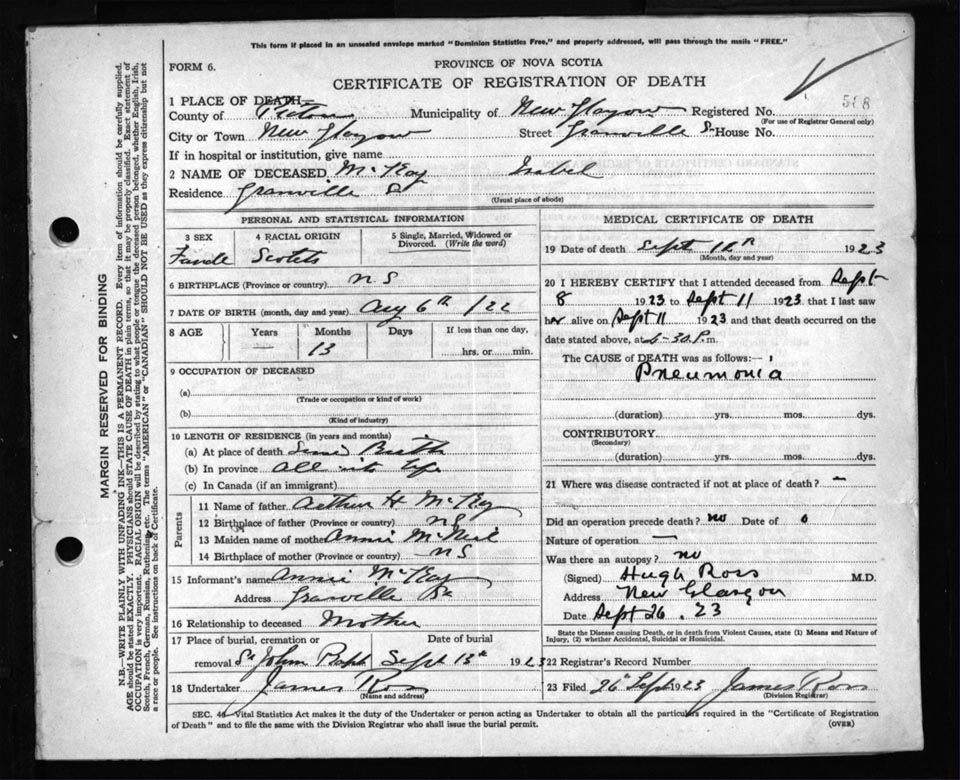 This form if placed in an unsealed envelope marked "Dominion Statistics Free," and properly addressed, will pass through the mails "FREE."
FORM 6.
PROVINCE OF NOVA SCOTIA
CERTIFICATE OF REGISTRATION OF DEATH
568
1 PLACE OF DEATH—
County of Pictou Municipality of New Glasgow Registered No.
(For use of Registrar General only)
City or Town New Glasgow Street Granville St House No.
If in hospital or institution, give name
2 NAME OF DECEASED McKay Isabel
Residence Granville St
(Usual place of abode)
PERSONAL AND STATISTICAL INFORMATION
3 SEX 4 RACIAL ORIGIN 5 Single, Married, Widowed or Divorced. (Write the word)
Female Scotch
6 BIRTHPLACE (Province or country) NS
7 DATE OF BIRTH (month, day and year) Aug 6th /22
8 AGE Years Months Days If less than one day,
— 13 hrs. or min.
9 OCCUPATION OF DECEASED
(a)
(Trade or occupation or kind of work)
(b)
(Kind of industry)
10 LENGTH OF RESIDENCE (in years and months)
(a) At place of death Since Birth
(b) In province All its life
(c) In Canada (if an immigrant)
Parents
11 Name of father Arthur H McKay
12 Birthplace of father (Province or country) NS
13 Maiden name of mother Annie McNeil
14 Birthplace of mother (Province or country) NS
15 Informant's name Annie McKay
Address Granville St
16 Relationship to deceased Mother
17 Place of burial, cremation or Date of burial
removal St John Sept 13th 1923
18 Undertaker James Ross
(Name and address)
MEDICAL CERTIFICATE OF DEATH
19 Date of death Sept 1923
(Month, day and year)
20 I HEREBY CERTIFY that I attended deceased from Sept
8 1923 to Sept 11 1923 that I last saw
her alive on Sept 11 1923 and that death occurred on the
date stated above, at 6-30 P.m.
The CAUSE OF DEATH was as follows:—
Pneumonia
(duration) yrs. mos. dys.
CONTRIBUTORY
(Secondary)
(duration) yrs. mos. dys.
21 Where was disease contracted if not at place of death? —
Did an operation precede death? no Date of o
Nature of operation —
Was there an autopsy? no
(Signed) Hugh Ross M.D.
Address New Glasgow
Date Sept 26. 23
State the Disease causing Death, or in death from Violent Causes, state (1) Means and Nature of
Injury, (2) whether Accidental, Suicidal or Homicidal.
22 Registrar's Record Number
23 Filed 26th Sept 1923 James Ross
(Division Registrar)
SEC. 46 Vital Statistics Act makes it the duty of the Undertaker or person acting as Undertaker to obtain all the particulars required in the "Certificate of Registration
of Death" and to file the same with the Division Registrar who shall issue the burial permit. (OVER)
MARGIN RESERVED FOR BINDING
N.B.—WRITE PLAINLY WITH UNFADING INK—THIS IS A PERMANENT RECORD. Every item of information should be carefully supplied.
AGE should be stated EXACTLY. PHYSICIANS should STATE CAUSE OF DEATH in plain terms, so that it may be properly classified. Exact statement of
OCCUPATION is very important. RACIAL ORIGIN will be described by stating to what people or tongue the deceased person belonged, whether English, Irish,
Scotch, French, German, Russian, Ruthenian, etc. The terms "AMERICAN" or "CANADIAN" SHOULD NOT BE USED as they express citizenship but not
a race or people. See instructions on back of Certificate.